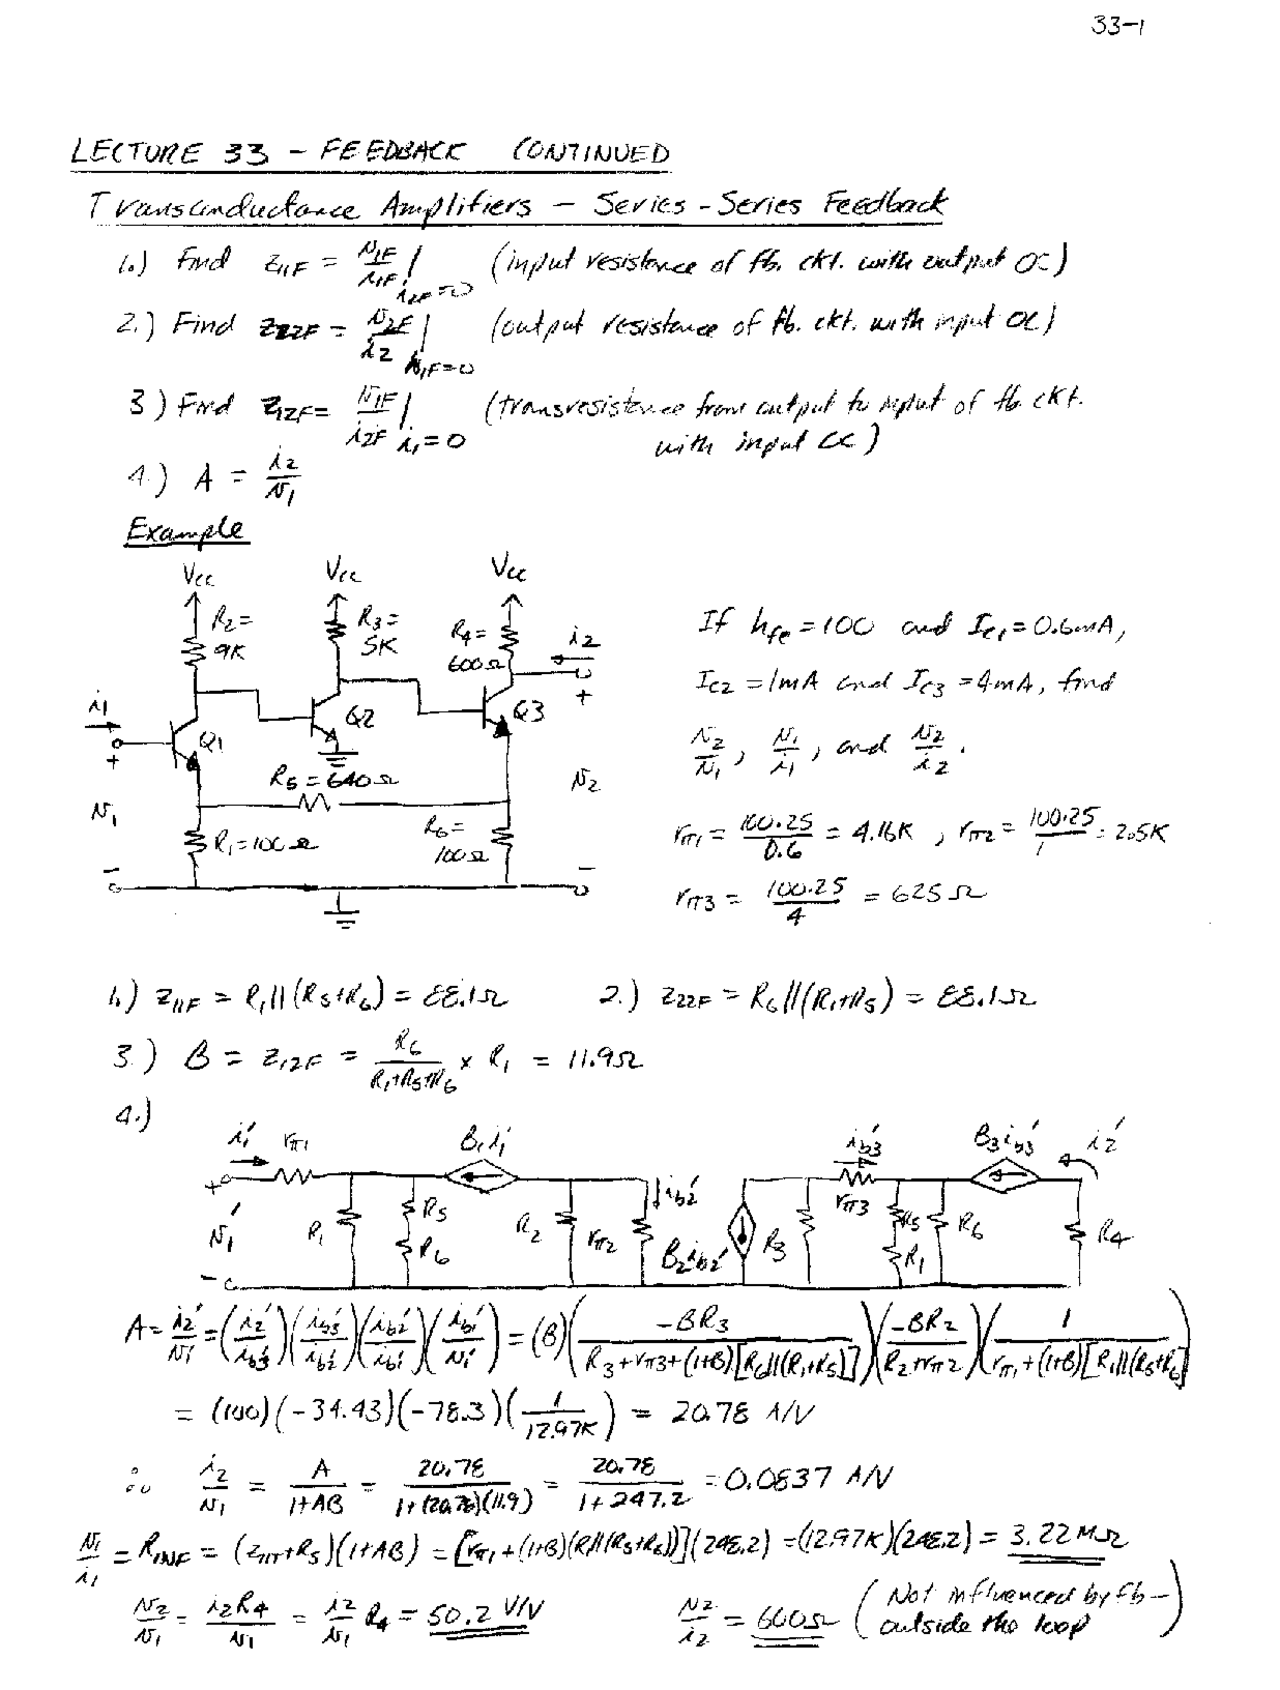 33-1
LECTURE 33 - FEEDBACK CONTINUED
Transconductance Amplifiers - Series-Series Feedback
1.) Find z11F = v1F/i1F | i2F=0 (input resistance of fb. ckt. with output OC)
2.) Find z22F = v2F/i2 | i1F=0 (output resistance of fb. ckt. with input OC)
3.) Find z12F = v1F/i2F | i1=0 (transresistance from output to input of fb ckt.
with input OC)
4.) A = i2/v1
Example
Vcc Vcc Vcc
R2= 9K R3= 5K R4= 600Ω i2
i1 + Q1 Q2 Q3 +
R5 = 640Ω
v1 v2
R1=100Ω R6= 100Ω
- -
If hfe = 100 and Ic1 = 0.6mA,
IC2 = 1mA and IC3 = 4mA, find
v2/v1, v1/i1, and v2/i2.
rπ1 = 100·25/0.6 = 4.16K, rπ2 = 100·25/1 = 2.5K
rπ3 = 100·25/4 = 625Ω
1.) z11F = R1||(R5+R6) = 88.1Ω 2.) z22F = R6||(R1+R5) = 88.1Ω
3.) B = z12F = R6/(R1+R5+R6) x R1 = 11.9Ω
4.)
i1' rπ1 B1i1' ib3' B3ib3' i2'
+ v1' - R1 R5 R6 R2 rπ2 ib2' B2ib2' R3 rπ3 R5 R1 R6 R4
A = i2'/v1' = (i2'/ib3')(ib3'/ib2')(ib2'/ib1')(ib1'/v1') = (B)(-BR3/(R3+rπ3+(1+B)[R6||(R1+R5)]))(-BR2/(R2+rπ2))(1/(rπ1+(1+B)[R1||(R5+R6)]))
= (100)(-34.43)(-78.3)(1/12.97K) = 20.78 A/V
∴ i2/v1 = A/(1+AB) = 20.78/(1+(20.78)(11.9)) = 20.78/(1+247.2) = 0.0837 A/V
v1/i1 = RINF = (z11T+RS)(1+AB) = [rπ1+(1+B)(R1||(R5+R6))](248.2) = (12.97K)(248.2) = 3.22MΩ
v2/v1 = i2R4/v1 = i2/v1 R4 = 50.2 V/V v2/i2 = 600Ω (Not influenced by fb-
outside the loop)